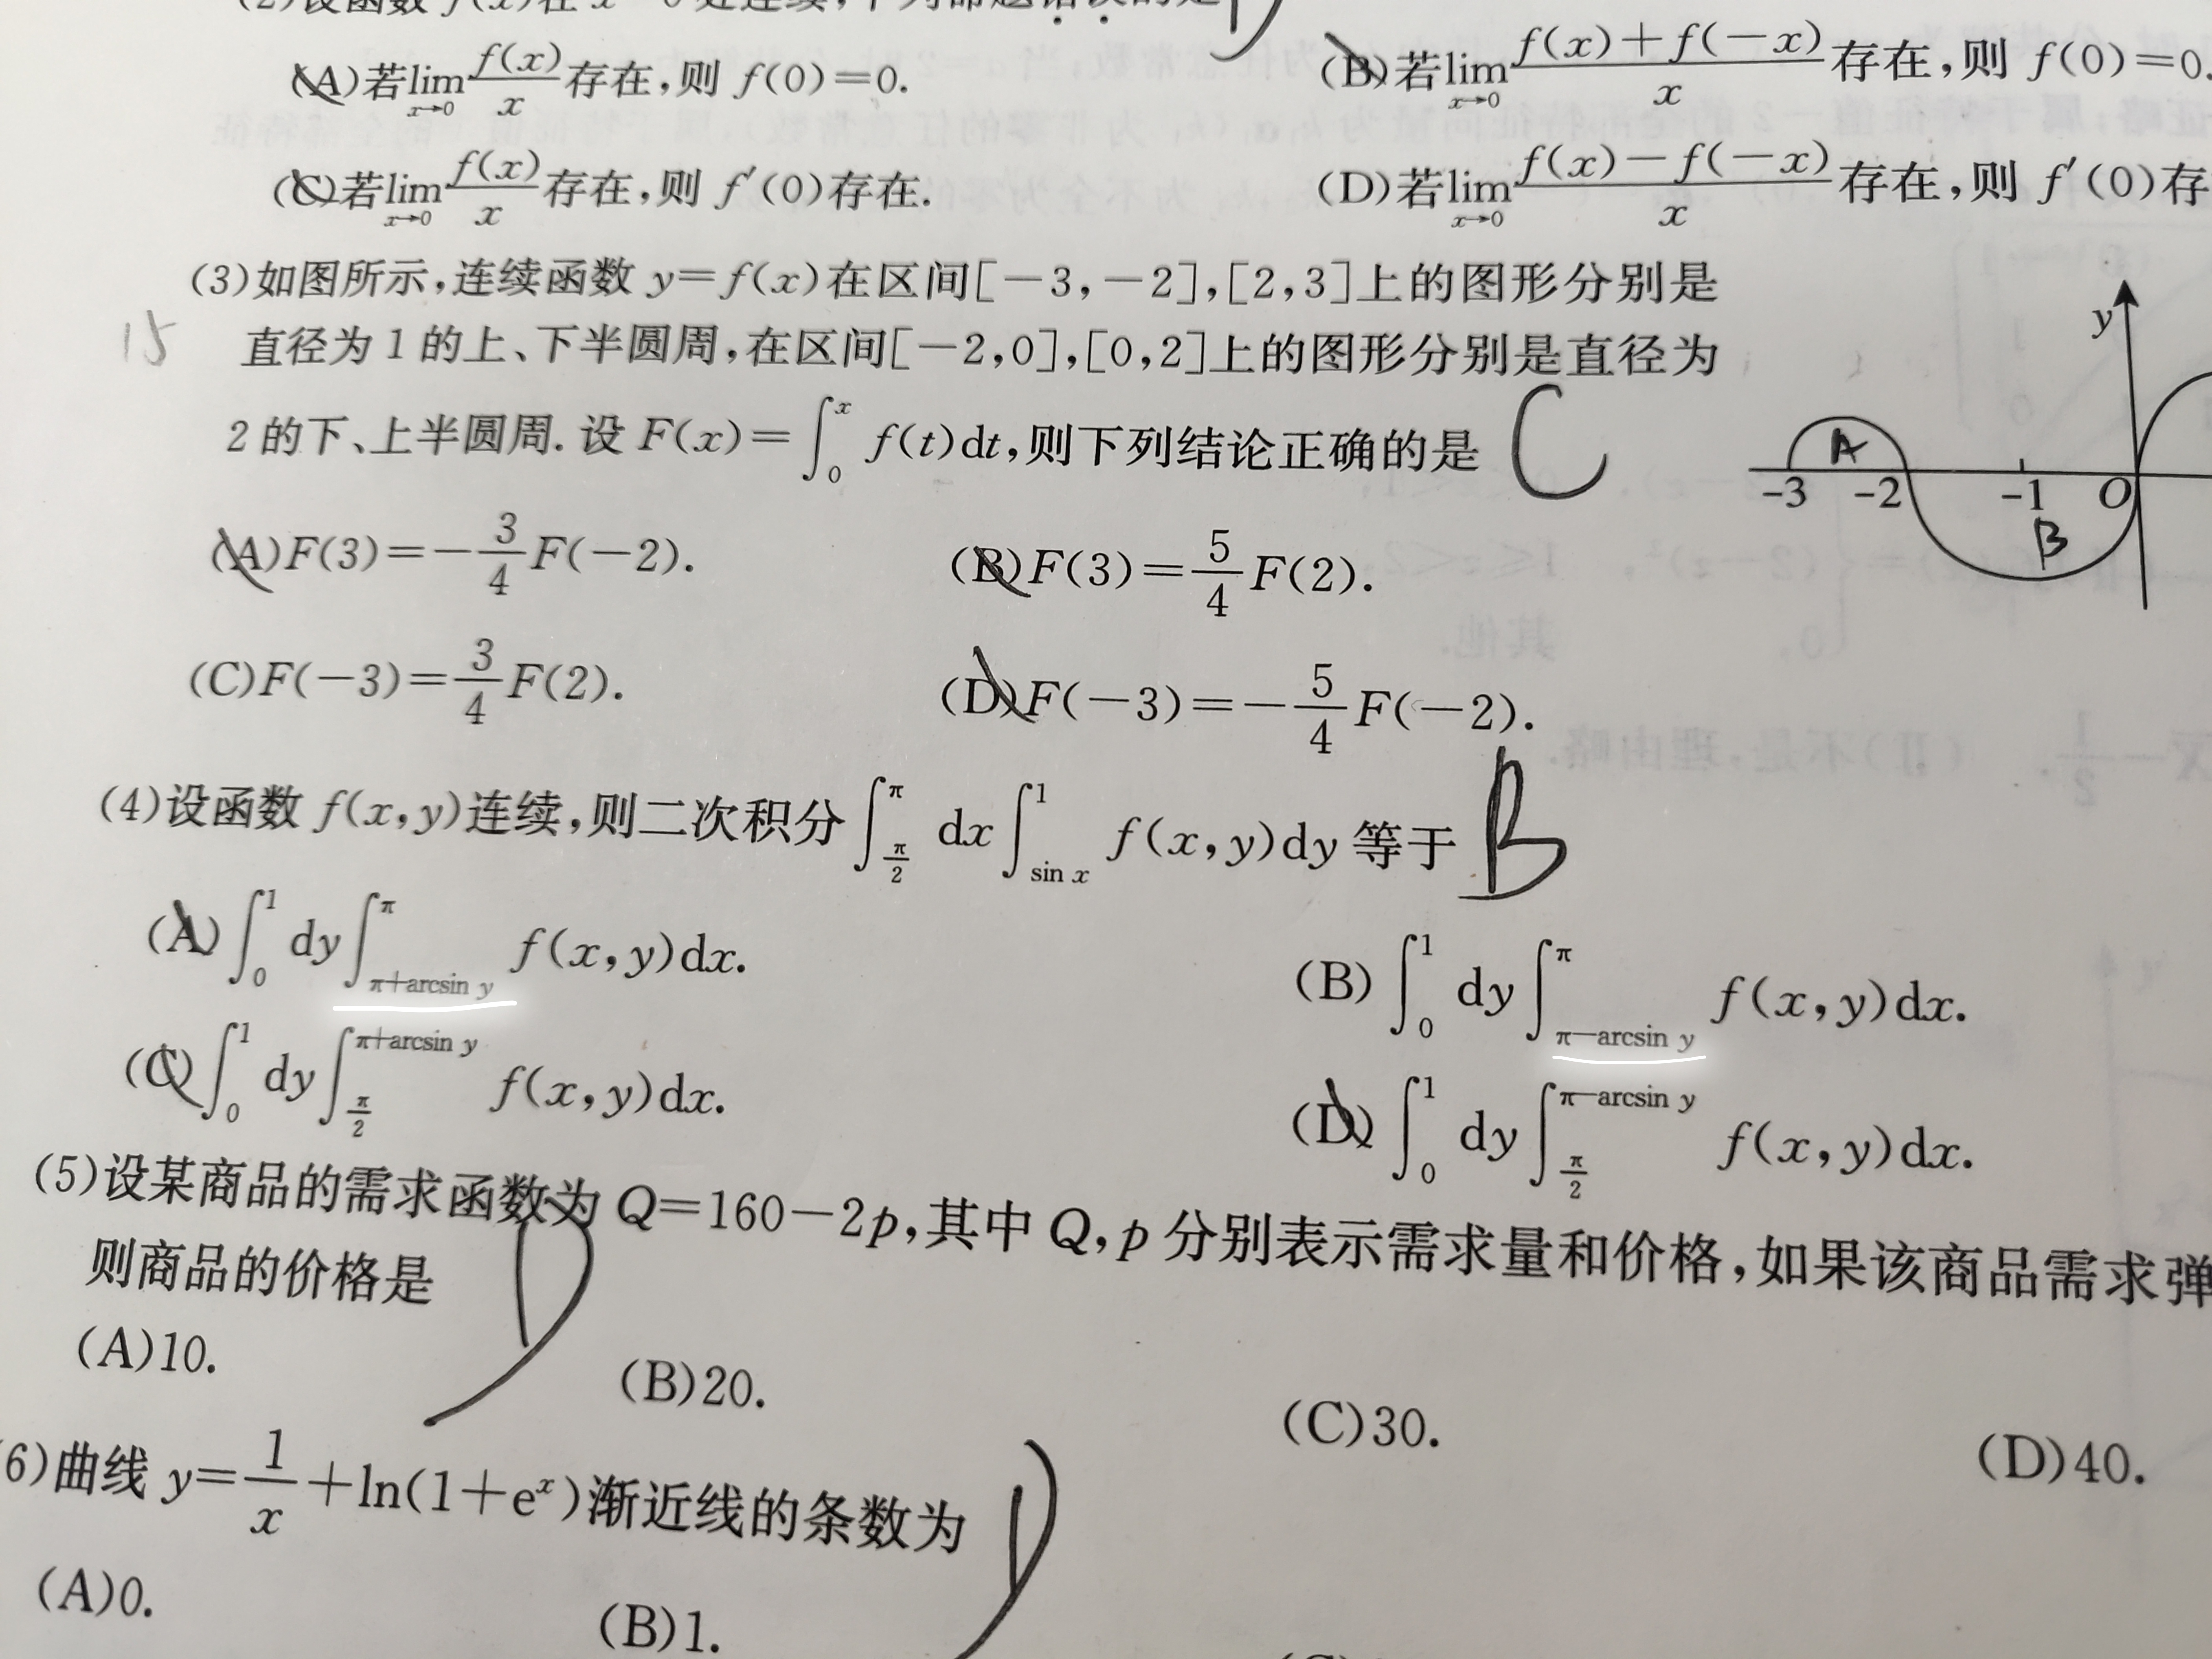 (A)若lim_{x→0} f(x)/x 存在,则 f(0)=0.
(B)若lim_{x→0} (f(x)+f(-x))/x 存在,则 f(0)=0.
(C)若lim_{x→0} f(x)/x 存在,则 f′(0)存在.
(D)若lim_{x→0} (f(x)-f(-x))/x 存在,则 f′(0)存
(3)如图所示,连续函数 y=f(x)在区间[-3,-2],[2,3]上的图形分别是
直径为 1 的上、下半圆周,在区间[-2,0],[0,2]上的图形分别是直径为
2 的下、上半圆周. 设 F(x)=∫_0^x f(t)dt,则下列结论正确的是 C
y
A
-3 -2 -1 O
B
12
(A)F(3)=-3/4 F(-2).
(B)F(3)=5/4 F(2).
(C)F(-3)=3/4 F(2).
(D)F(-3)=-5/4 F(-2).
(4)设函数 f(x,y)连续,则二次积分∫_{π/2}^π dx∫_{sin x}^1 f(x,y)dy 等于 B
(A)∫_0^1 dy∫_{π+arcsin y}^π f(x,y)dx.
(B)∫_0^1 dy∫_{π-arcsin y}^π f(x,y)dx.
(C)∫_0^1 dy∫_{π/2}^{π+arcsin y} f(x,y)dx.
(D)∫_0^1 dy∫_{π/2}^{π-arcsin y} f(x,y)dx.
(5)设某商品的需求函数为 Q=160-2p,其中 Q,p 分别表示需求量和价格,如果该商品需求弹
则商品的价格是 D
(A)10.
(B)20.
(C)30.
(D)40.
6)曲线 y=1/x+ln(1+e^x)渐近线的条数为 D
(A)0.
(B)1.